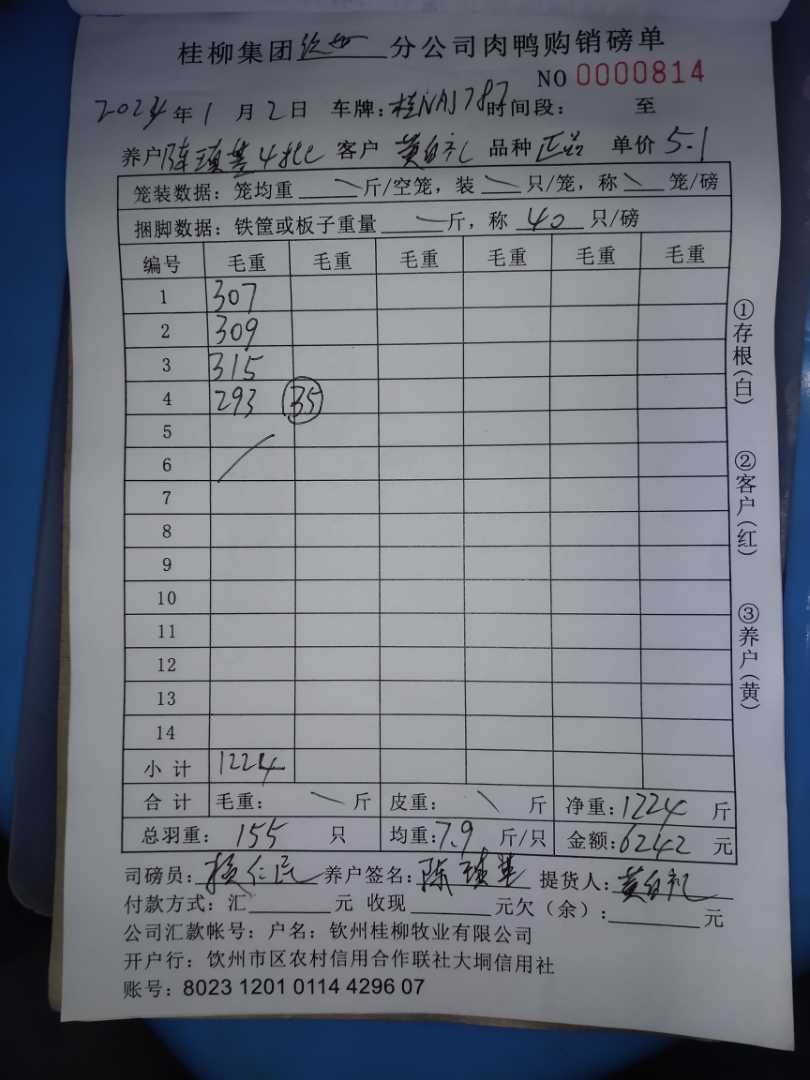 桂柳集团钦州分公司肉鸭购销磅单
NO 0000814
2024年1月2日 车牌:桂NAJ787时间段: 至
养户陈 客户 黄 礼 品种 正品 单价 5.1
笼装数据:笼均重 \ 斤/空笼,装 \ 只/笼,称 \ 笼/磅
捆脚数据:铁筐或板子重量 \ 斤,称 40 只/磅
编号 毛重 毛重 毛重 毛重 毛重 毛重
1 307
2 309
3 315
4 293 35
5
6
7
8
9
10
11
12
13
14
小计 1224
合计 毛重: \ 斤 皮重: \ 斤 净重:1224 斤
总羽重: 155 只 均重:7.9 斤/只 金额:6242 元
司磅员: 仁民 养户签名:陈 提货人:黄 礼
付款方式:汇 元 收现 元欠(余): 元
公司汇款帐号:户名:钦州桂柳牧业有限公司
开户行:饮州市区农村信用合作联社大垌信用社
账号:8023 1201 0114 4296 07
①存根(白)
②客户(红)
③养户(黄)